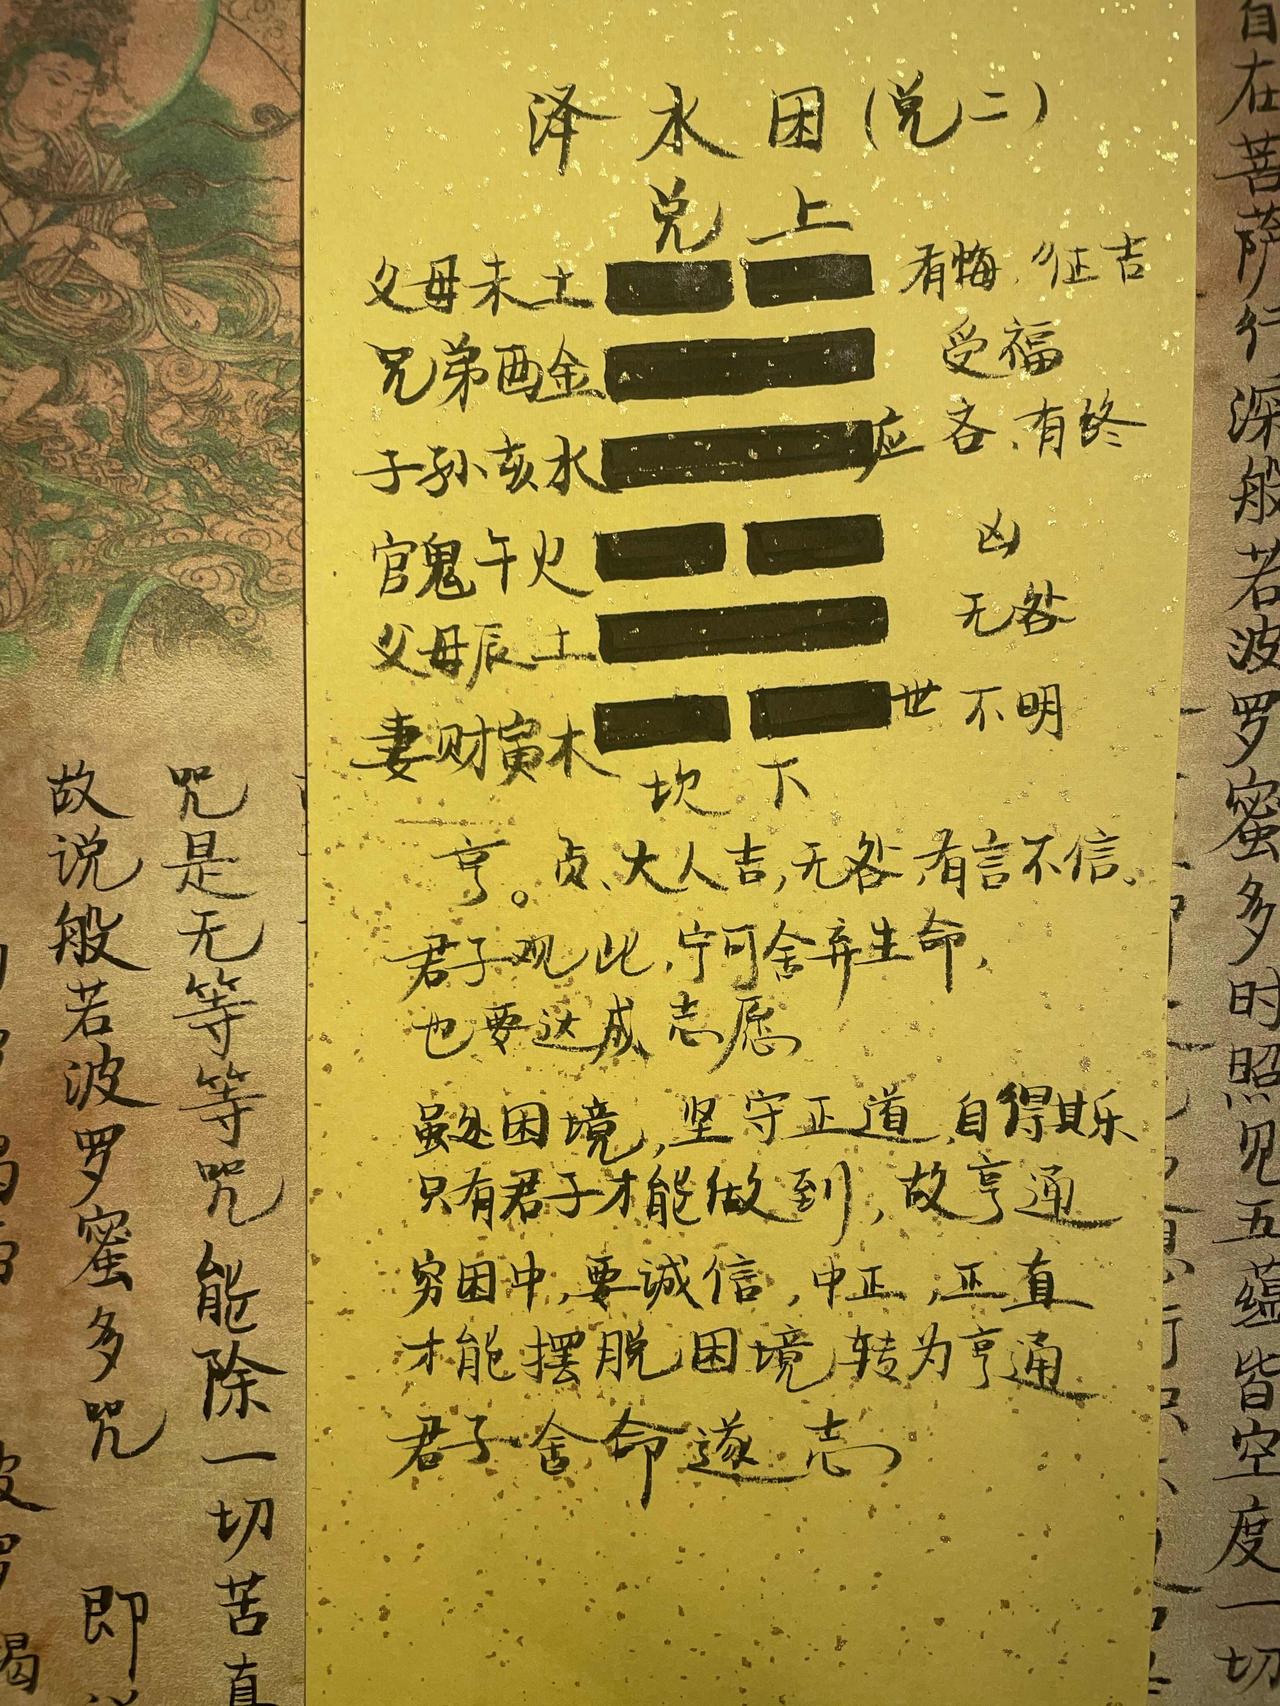 泽水困(兑二)
兑上
父母未土 有悔、征吉
兄弟酉金 受福
子孙亥水 应 吝、有终
官鬼午火 凶
父母辰土 无咎
妻财寅木 世 不明
坎下
亨。贞、大人吉,无咎,有言不信、
君子观此,宁可舍弃生命,
也要达成志愿
虽处困境,坚守正道,自得其乐
只有君子才能做到,故亨通
穷困中,要诚信,中正,正直
才能摆脱困境,转为亨通
君子舍命遂志
自在菩萨行深般若波罗蜜多时照见五蕴皆空度一切
咒是无等等咒能除一切苦真
故说般若波罗蜜多咒 即